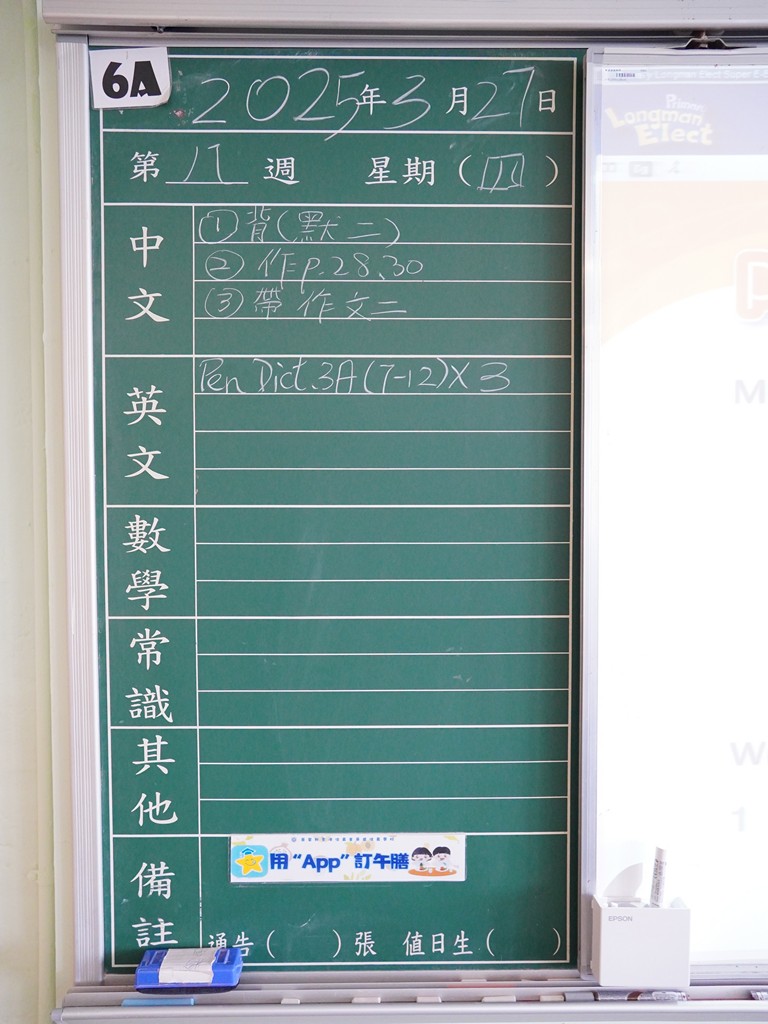 6A
2025年3月27日
第 八 週 星期（四）
中文
① 背(默二)
② 作p.28.30
③ 帶 作文二
英文
Pen Dict.3A(7-12)×3
數學
常識
其他
備註
用“App”訂午膳
通告（ ）張 值日生（ ）
Primary
Longman
Elect
EPSON